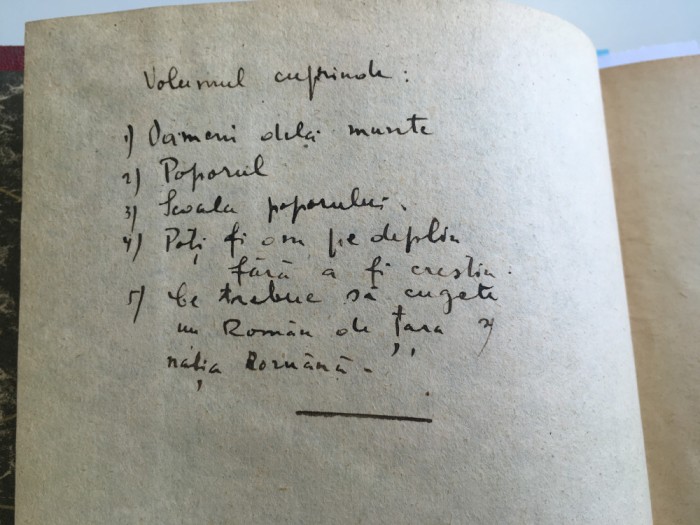 Volumul cuprinde:
1) Oameni dela munte
2) Poporul
3) Scoala poporului.
4) Poți fi om pe deplin
fără a fi crestin.
5) Ce trebue să cugete
un Român de țara
nația Română.